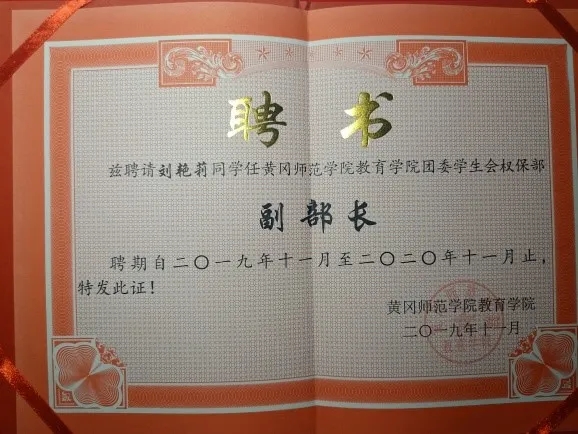 聘书
兹聘请刘艳莉同学任黄冈师范学院教育学院团委学生会权保部
副部长
聘期自二〇一九年十一月至二〇二〇年十一月止，
特发此证！
黄冈师范学院教育学院
二〇一九年十一月